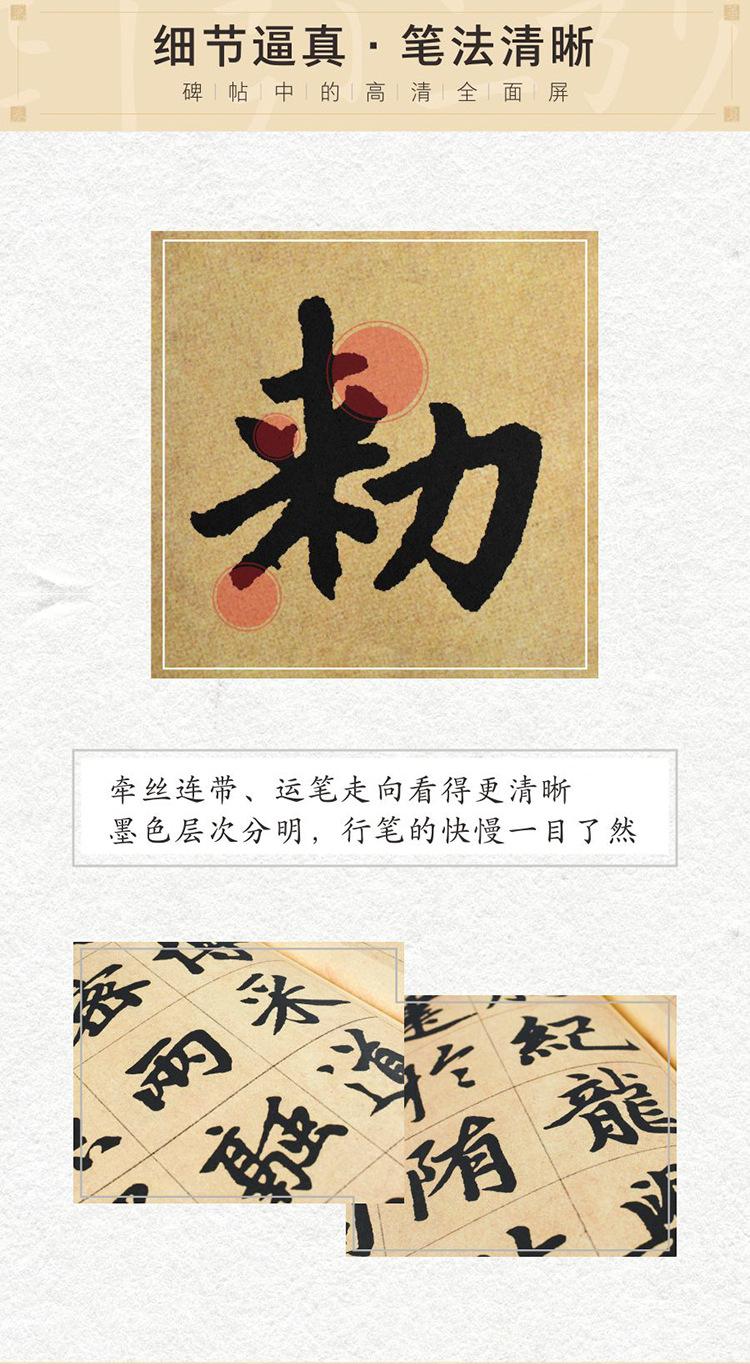 细节逼真·笔法清晰
碑帖中的高清全面屏
勑
牵丝连带、运笔走向看得更清晰
墨色层次分明，行笔的快慢一目了然
兩
采
道
騷
紀
於
龍
隋